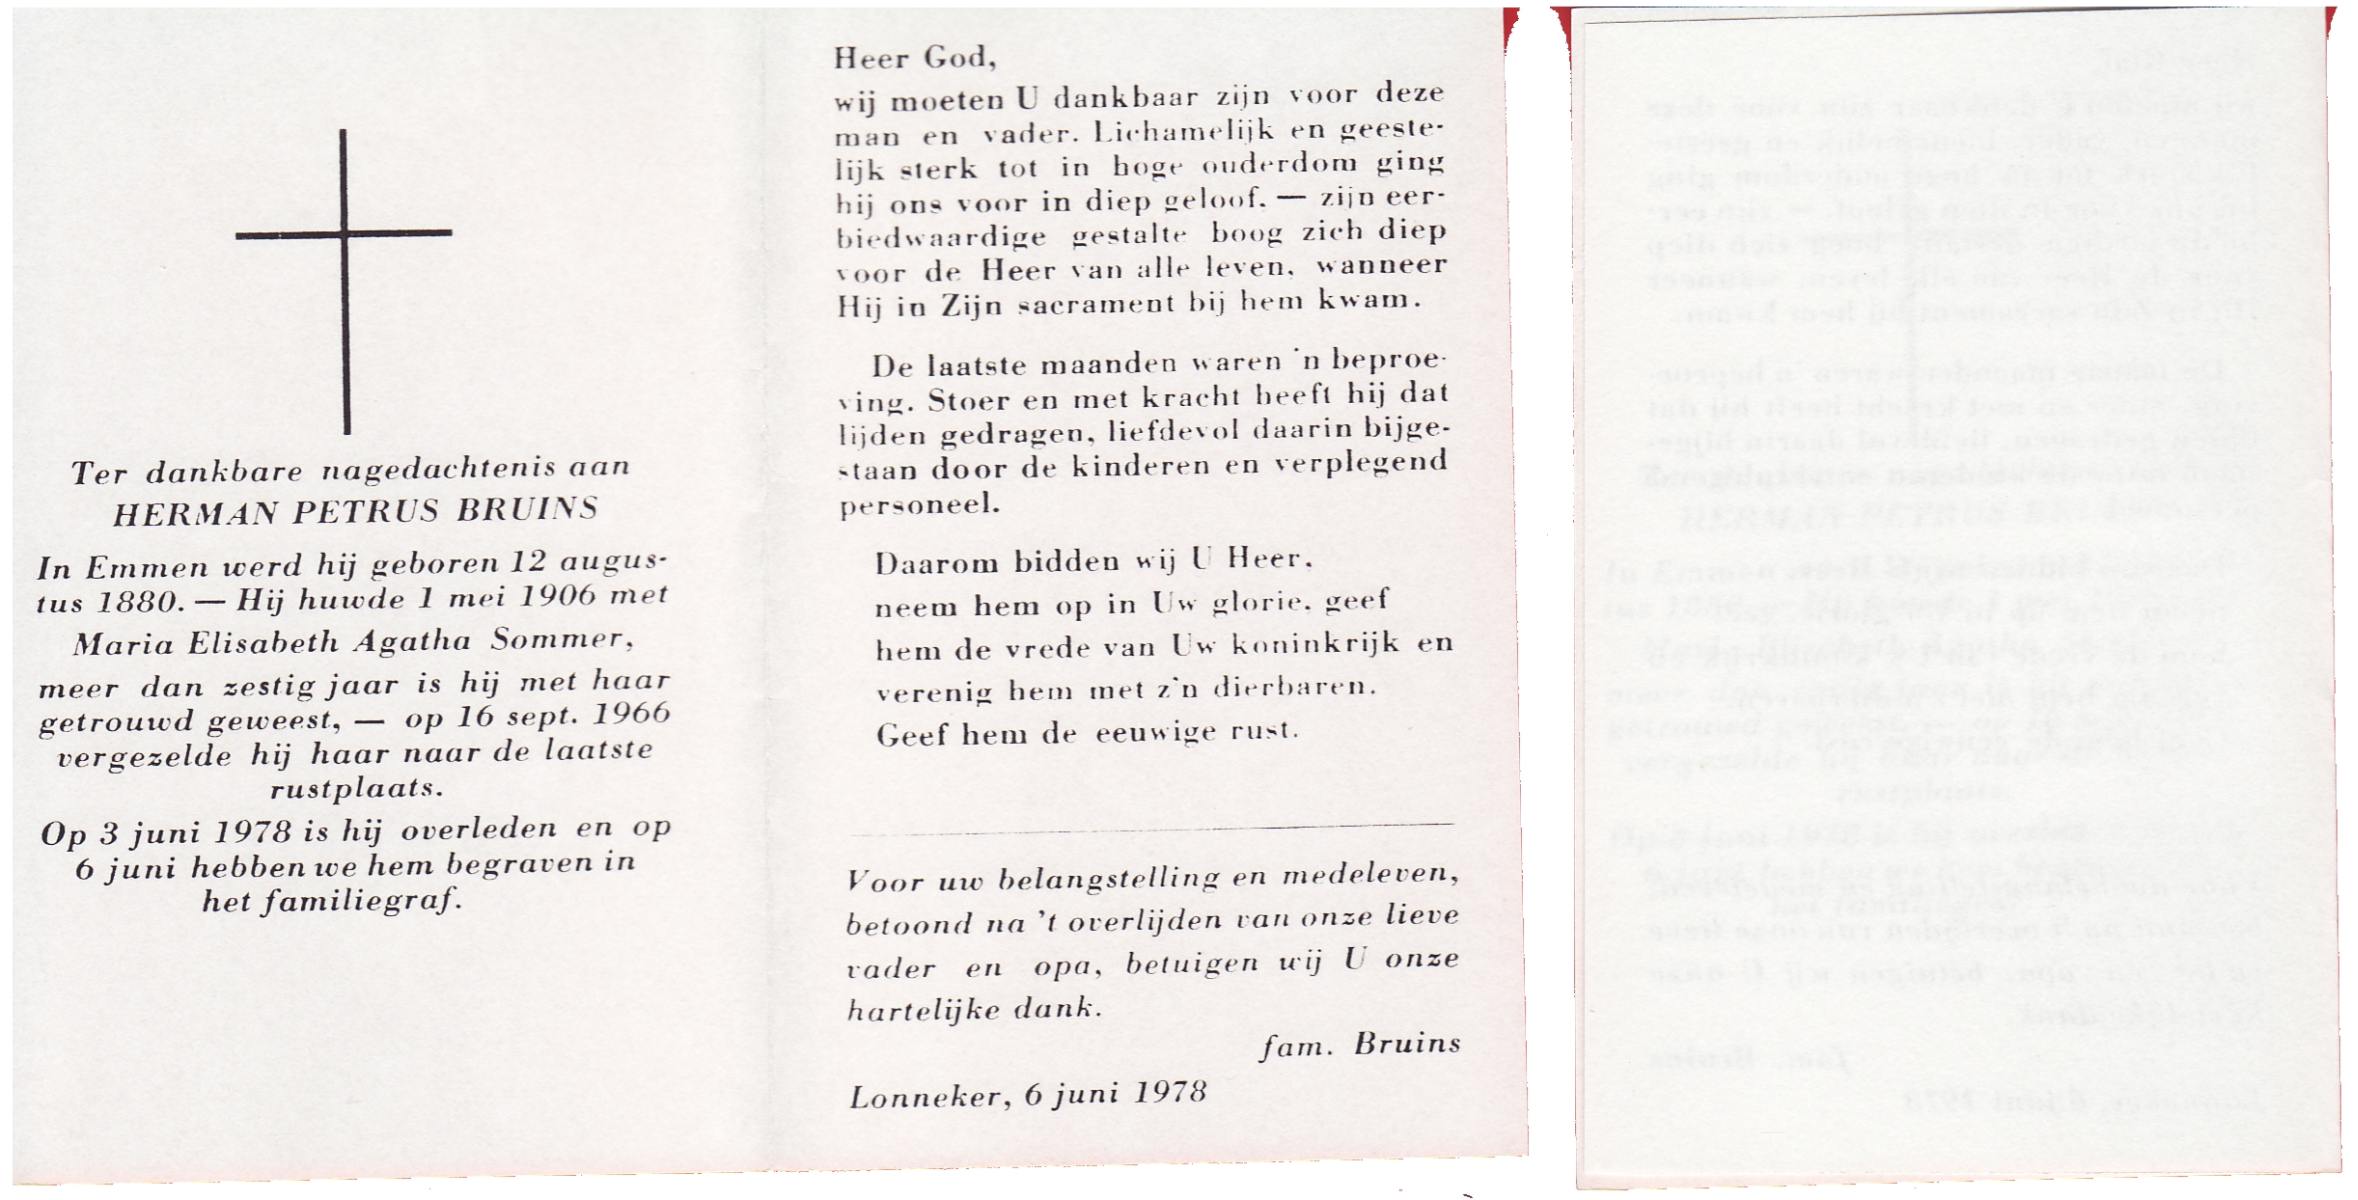 Ter dankbare nagedachtenis aan
HERMAN PETRUS BRUINS
In Emmen werd hij geboren 12 augus-
tus 1880. — Hij huwde 1 mei 1906 met
Maria Elisabeth Agatha Sommer,
meer dan zestig jaar is hij met haar
getrouwd geweest, — op 16 sept. 1966
vergezelde hij haar naar de laatste
rustplaats.
Op 3 juni 1978 is hij overleden en op
6 juni hebben we hem begraven in
het familiegraf.
Heer God,
wij moeten U dankbaar zijn voor deze
man en vader. Lichamelijk en geeste-
lijk sterk tot in hoge ouderdom ging
hij ons voor in diep geloof. — zijn eer-
biedwaardige gestalte boog zich diep
voor de Heer van alle leven, wanneer
Hij in Zijn sacrament bij hem kwam.
De laatste maanden waren 'n beproe-
ving. Stoer en met kracht heeft hij dat
lijden gedragen, liefdevol daarin bijge-
staan door de kinderen en verplegend
personeel.
Daarom bidden wij U Heer,
neem hem op in Uw glorie, geef
hem de vrede van Uw koninkrijk en
verenig hem met z'n dierbaren.
Geef hem de eeuwige rust.
Voor uw belangstelling en medeleven,
betoond na 't overlijden van onze lieve
vader en opa, betuigen wij U onze
hartelijke dank.
fam. Bruins
Lonneker, 6 juni 1978